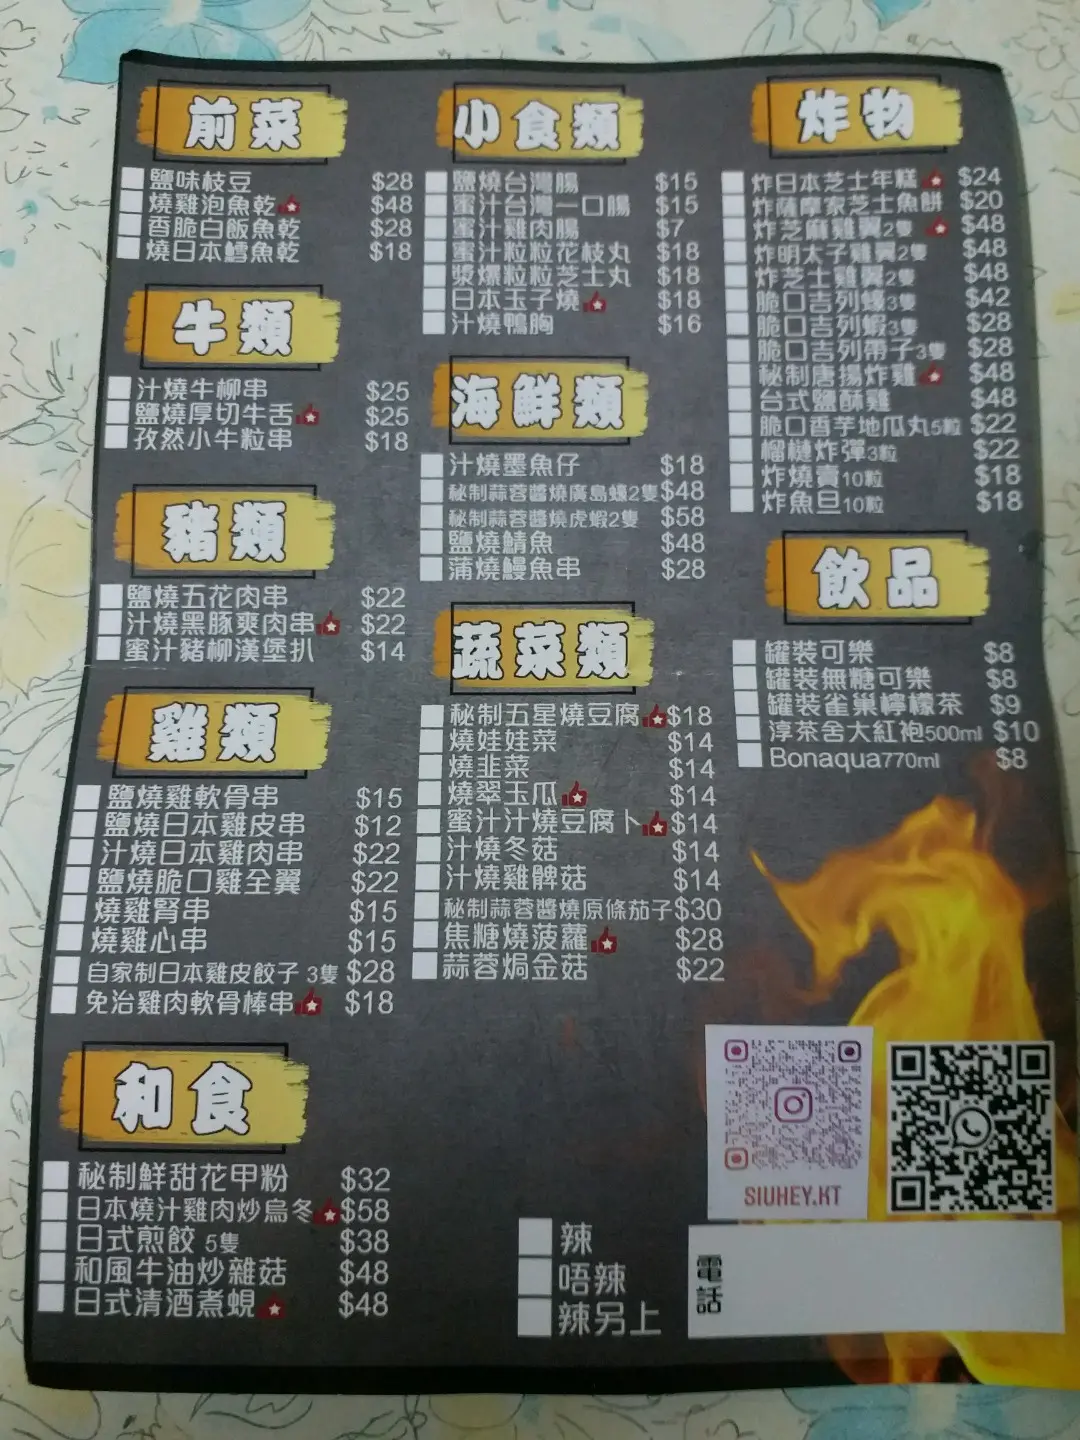 前菜
鹽味枝豆 $28
燒雞泡魚乾 $48
香脆白飯魚乾 $28
燒日本鱈魚乾 $18
牛類
汁燒牛柳串 $25
鹽燒厚切牛舌 $25
孜然小牛粒串 $18
豬類
鹽燒五花肉串 $22
汁燒黑豚爽肉串 $22
蜜汁豬柳漢堡扒 $14
雞類
鹽燒雞軟骨串 $15
鹽燒日本雞皮串 $12
汁燒日本雞肉串 $22
鹽燒脆口雞全翼 $22
燒雞腎串 $15
燒雞心串 $15
自家制日本雞皮餃子 3隻 $28
免治雞肉軟骨棒串 $18
和食
秘制鮮甜花甲粉 $32
日本燒汁雞肉炒烏冬 $58
日式煎餃 5隻 $38
和風牛油炒雜菇 $48
日式清酒煮蜆 $48
小食類
鹽燒台灣腸 $15
蜜汁台灣一口腸 $15
蜜汁雞肉腸 $7
蜜汁粒粒花枝丸 $18
漿爆粒粒芝士丸 $18
日本玉子燒 $18
汁燒鴨胸 $16
海鮮類
汁燒墨魚仔 $18
秘制蒜蓉醬燒廣島蠔2隻 $48
秘制蒜蓉醬燒虎蝦2隻 $58
鹽燒鯖魚 $48
蒲燒鰻魚串 $28
蔬菜類
秘制五星燒豆腐 $18
燒娃娃菜 $14
燒韭菜 $14
燒翠玉瓜 $14
蜜汁汁燒豆腐卜 $14
汁燒冬菇 $14
汁燒雞髀菇 $14
秘制蒜蓉醬燒原條茄子 $30
焦糖燒菠蘿 $28
蒜蓉焗金菇 $22
炸物
炸日本芝士年糕 $24
炸薩摩家芝士魚餅 $20
炸芝麻雞翼2隻 $48
炸明太子雞翼2隻 $48
炸芝士雞翼2隻 $48
脆口吉列蠔3隻 $42
脆口吉列蝦3隻 $28
脆口吉列帶子3隻 $28
秘制唐揚炸雞 $48
台式鹽酥雞 $48
脆口香芋地瓜丸5粒 $22
榴槤炸彈3粒 $22
炸燒賣10粒 $18
炸魚旦10粒 $18
飲品
罐裝可樂 $8
罐裝無糖可樂 $8
罐裝雀巢檸檬茶 $9
淳茶舍大紅袍500ml $10
Bonaqua770ml $8
SIUHEY.KT
辣
唔辣
辣另上
電話